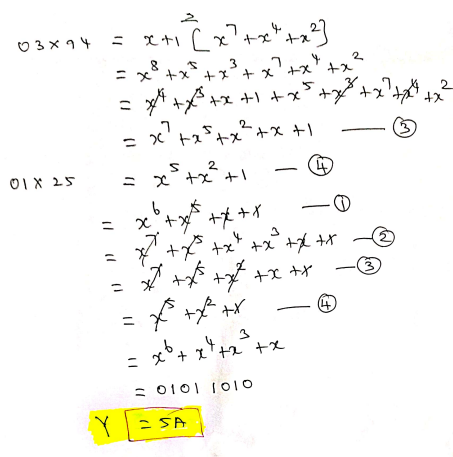 03 x 94 = x+1 [x⁷+x⁴+x²]
= x⁸+x⁵+x³+x⁷+x⁴+x²
= x⁴+x³+x+1+x⁵+x³+x⁷+x⁴+x²
= x⁷+x⁵+x²+x+1 — ③
01 x 25 = x⁵+x²+1 — ④
= x⁶+x⁵+x+1 — ①
= x⁷+x⁵+x⁴+x³+x+1 — ②
= x⁷+x⁵+x²+x+1 — ③
= x⁵+x²+1 — ④
= x⁶+x⁴+x³+x
= 0101 1010
Y = 5A